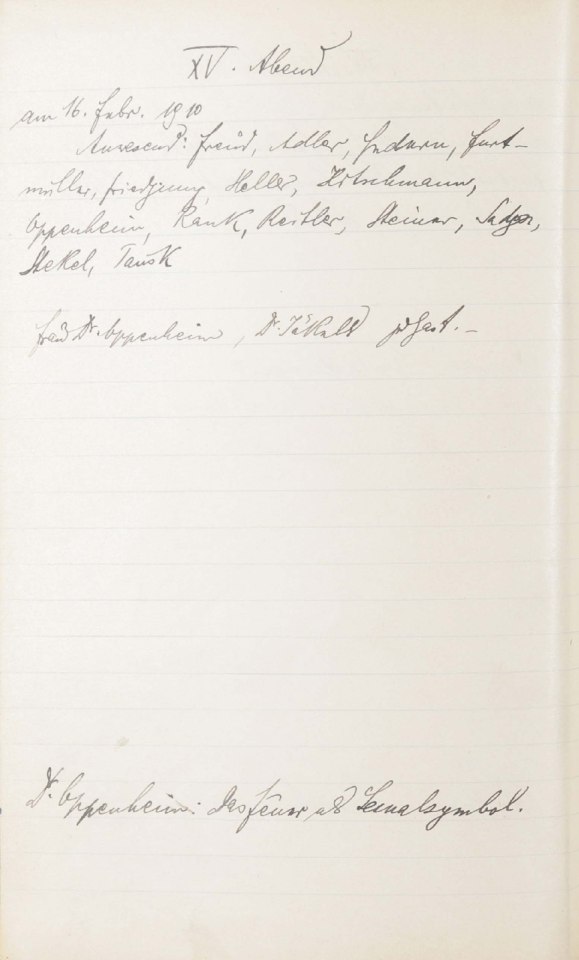 XV. Abend
am 16. Febr. 1910
Anwesend: Freud, Adler, Federn, Furt-
müller, Friedjung, Heller, Hitschmann,
Oppenheim, Rank, Reitler, Steiner, Sadger,
Stekel, Tausk
Frau Dr. Oppenheim, Dr. Jekels als Gast. –
Dr. Oppenheim: Das Feuer als Sexualsymbol.